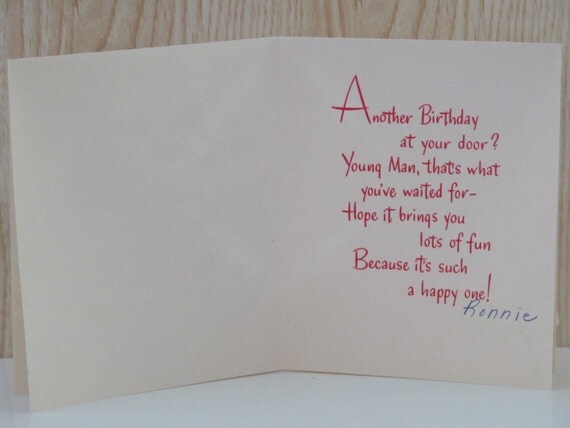 Another Birthday
at your door?
Young Man, that's what
you've waited for-
Hope it brings you
lots of fun
Because it's such
a happy one!
Ronnie